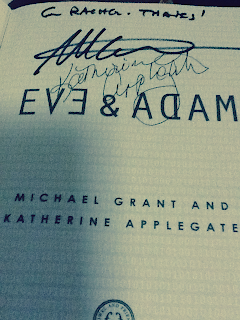 RACHEL. THANKS!
Katherine Applegate
EVE & ADAM
MICHAEL GRANT AND
KATHERINE APPLEGATE